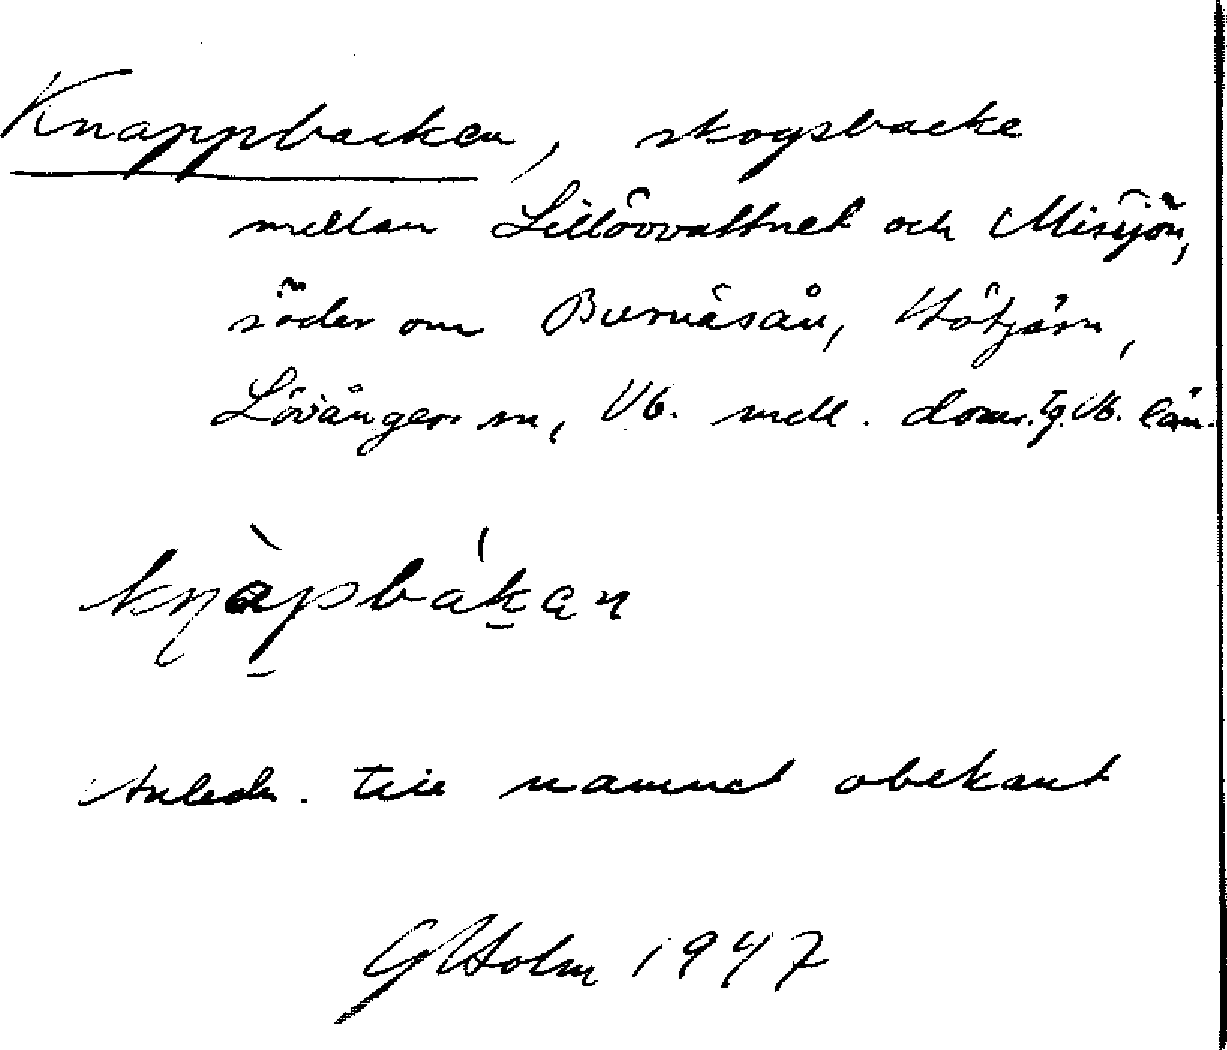 Knappbacken, skogsbacke
mellan Lillövvattnet och Misjön,
söder om Burnäsån, Hötjärn,
Lövångers sn, Vb. mell. doms. Vb. län.
kn̥àpbákan
Anledn. till namnet obekant
G Holm 1947